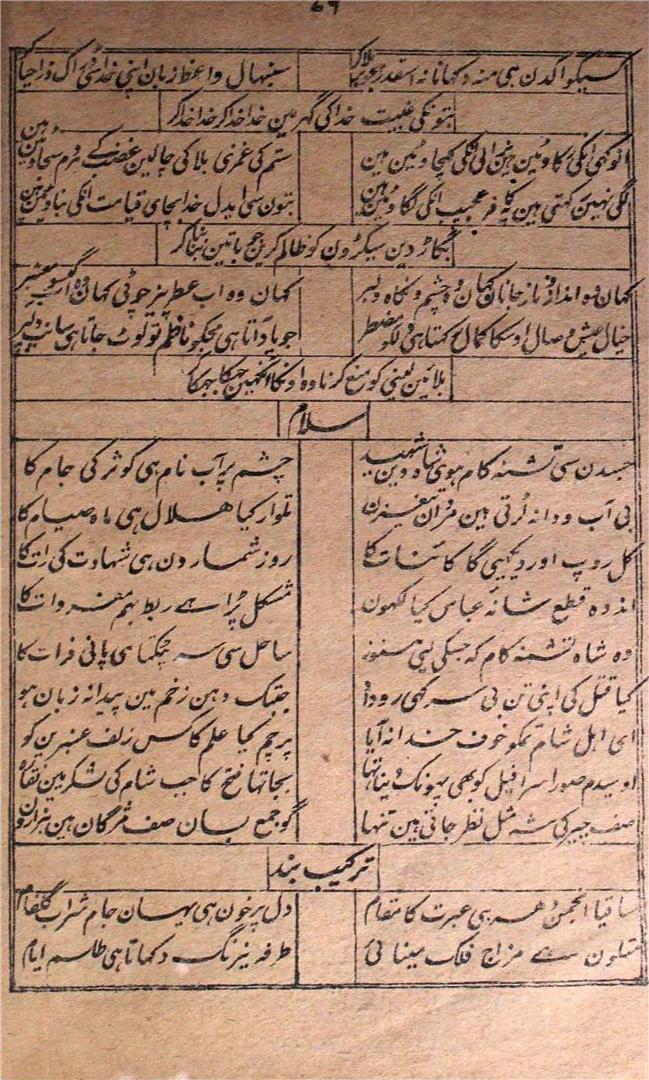 ۶۹
کسیکو اکدن ہی منہ دکھانا نہ اسقدر بلا کر سنبھال واعظ زبان اپنی خدا سی ڈر اک ذرا حیا کر
بتونکی غیبت خدا کی گھر مین خدا خدا کر خدا خدا کر
انوکھی انکی ہین ستم کی غمزی بلا کی چالین غضب کے
لگی نہین کہتی ہین بتون سی ایدل خدا بچای قیامت انکی
بگاڑ دین سیکڑون کو ظالم کرین جو باتین بنا بنا کر
کہان وہ انداز و ناز جانان کہان وہ چشم و نگاہ دلبر کہان وہ اب عطر بیز چوٹی کہان وہ گیسو معنبر
خیال عیش وصال اوسکا کمال کہتا ہی دلکو مضطر جو یاد آتا ہی مجکو ناظم تو لوٹ جاتا ہی سانپ دلپر
بلائین لینی کو منع کرنا وہ اونکا آنکھین جھکا جھکا کر
سلام
جسدن سی تشنہ کام ہوئی شاہ شہید چشم پر آب نام ہی کوثر کی جام کا
بی آب و دانہ لڑتی ہین تلوار کیا ھلال ہی ماہ صیام کا
کل روپ اور دیکھیی گا کائنات کا روز شمار دن ہی شہادت کی رات کا
اندوہ قطع شانہ عباس کیا لکھون مشکل پڑا ہے ربط بہم مفردات کا
وہ شاہ تشنہ کام کہ جسکی لیی ہنوز ساحل سی سر پٹکتا ہی پانی فرات کا
کیا قتل کی اپنی تن بی سر کہی روداد جبتک دہن زخم مین پیدا نہ زبان ہو
ای اہل شام تمکو خوف خدا نہ آیا پرچم کیا علم کا کس زلف عنبرین کو
اوسیدم صور اسرافیل کو بھی پھونک دینا تہا بجا تہا فتح کا جب شام کی لشکر مین نقارہ
صف چیر کی شہ مثل نظر جاتی ہین تنہا گو جمع بسان صف مژگان ہین ہزارون
ترکیب بند
ساقیا انجمن دہر ہی عبرت کا مقام دل پر خون ہی یہان جام شراب گلفام
متلون ہے مزاج فلک مینائی طرفہ نیرنگ دکھاتا ہی طلسم ایام